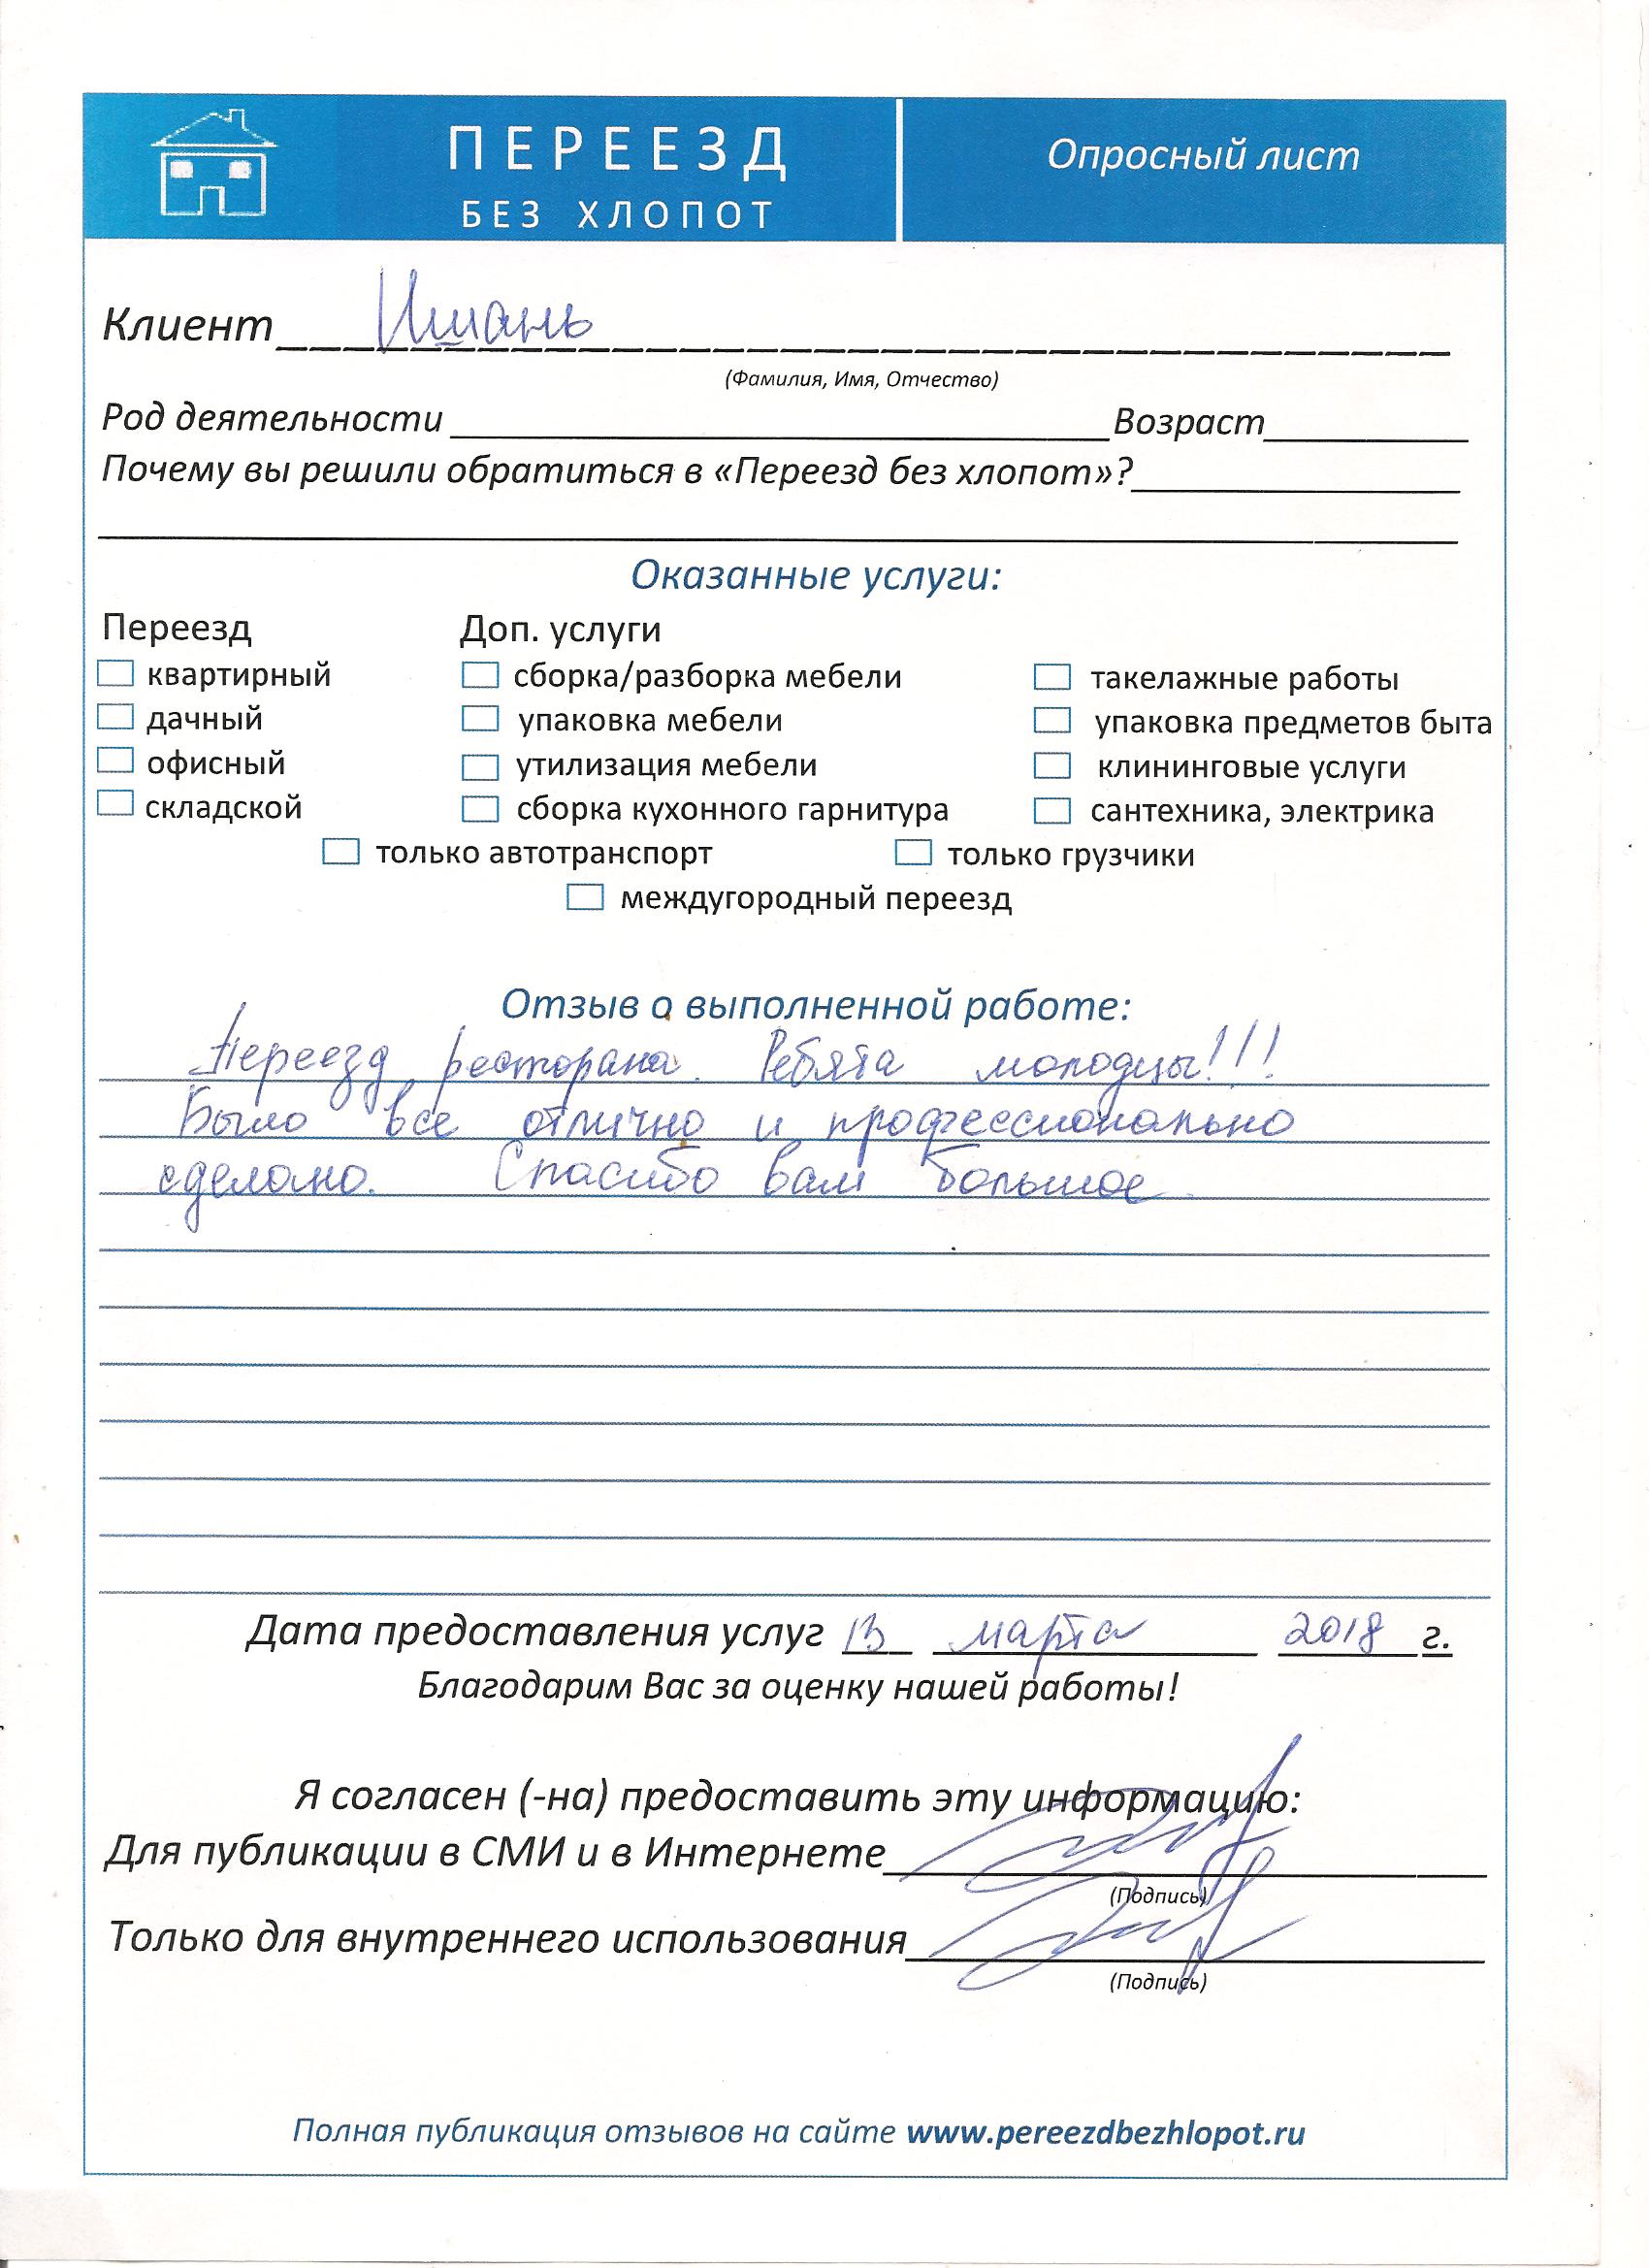 ПЕРЕЕЗД
БЕЗ ХЛОПОТ
Опросный лист
Клиент Ишань
(Фамилия, Имя, Отчество)
Род деятельности Возраст
Почему вы решили обратиться в «Переезд без хлопот»?
Оказанные услуги:
Переезд Доп. услуги
квартирный сборка/разборка мебели такелажные работы
дачный упаковка мебели упаковка предметов быта
офисный утилизация мебели клининговые услуги
складской сборка кухонного гарнитура сантехника, электрика
только автотранспорт только грузчики
междугородный переезд
Отзыв о выполненной работе:
Переезд ресторана. Ребята молодцы!!!
Было все отлично и профессионально
сделано. Спасибо вам большое.
Дата предоставления услуг 13 марта 2018 г.
Благодарим Вас за оценку нашей работы!
Я согласен (-на) предоставить эту информацию:
Для публикации в СМИ и в Интернете
(Подпись)
Только для внутреннего использования
(Подпись)
Полная публикация отзывов на сайте www.pereezdbezhlopot.ru